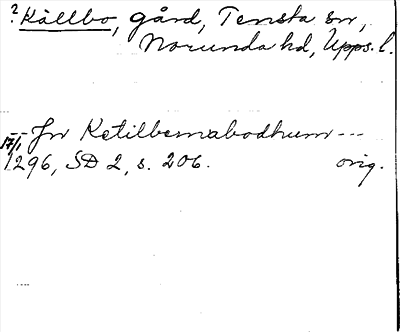 ? Källbo, gård, Tensta sn,
Norunda hd, Upps. l.
-- Jn Ketilbernabodhum ---
17/1 1296, SD 2, s. 206. orig.